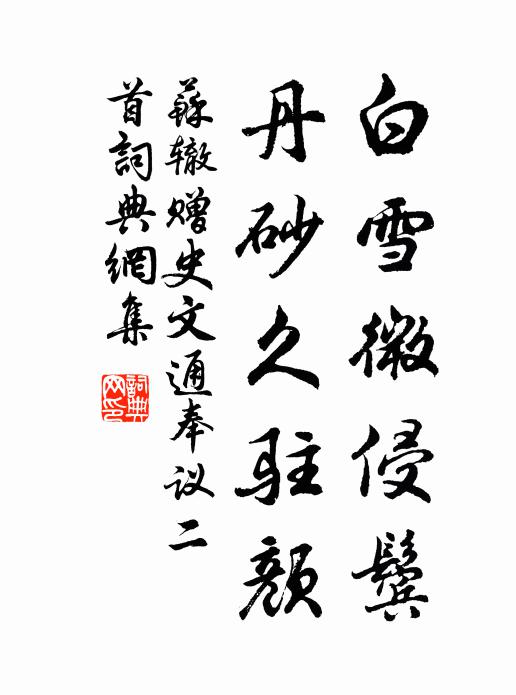 白雪微侵鬓
丹砂久驻颜
蘇辙赠史文通奉议二
首詞典網集
詞典
网印